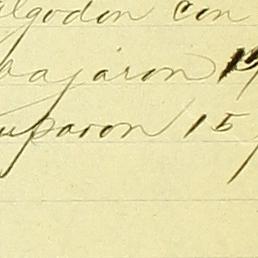 algodon con
bajaron 1
uparon 15